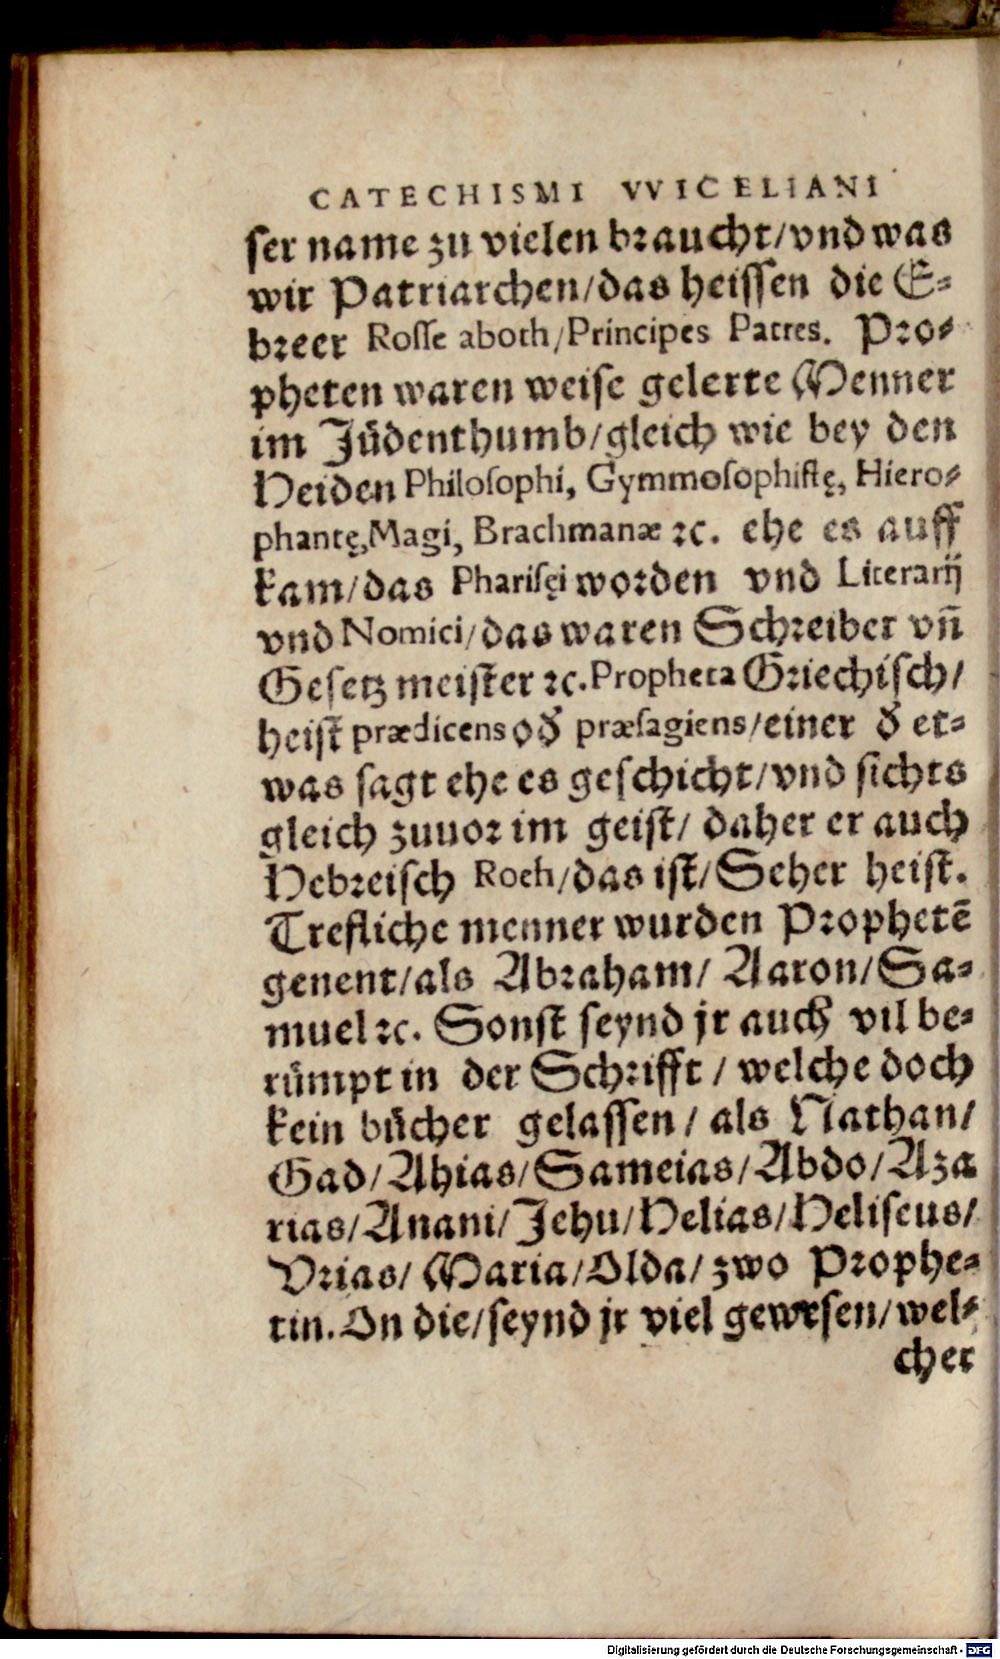 CATECHISMI VVICELIANI
ſer name zu vielen braucht/vnd was
wir Patriarchen/das heiſſen die E⸗
breer Roſſe aboth/Principes Patres. Pro⸗
pheten waren weiſe gelerte Menner
im Jüdenthumb/gleich wie bey den
Heiden Philoſophi, Gymmoſophiſtę, Hiero⸗
phantę,Magi, Brachmanæ ꝛc. ehe es auff
kam/das Phariſęi worden vnd Literarij
vnd Nomici/das waren Schreiber vñ
Geſetz meiſter ꝛc.Propheta Griechiſch/
heiſt prædicens oď præſagiens/einer ď et⸗
was ſagt ehe es geſchicht/vnd ſichts
gleich zuuor im geiſt/ daher er auch
Hebreiſch Roeh/das iſt/Seher heiſt.
Trefliche menner wurden Prophetē
genent/als Abraham/ Aaron/Sa⸗
muel ꝛc. Sonſt ſeynd jr auch vil be⸗
rümpt in der Schrifft / welche doch
kein bücher gelaſſen / als Nathan/
Gad/Ahias/Sameias/Abdo/Aza
rias/Anani/Jehu/Helias/Heliſeus/
Vrias/ Maria/Olda/ zwo Prophe⸗
tin.On die/ſeynd jr viel geweſen/wel⸗
cher
Digitalisierung gefördert durch die Deutsche Forschungsgemeinschaft - DFG